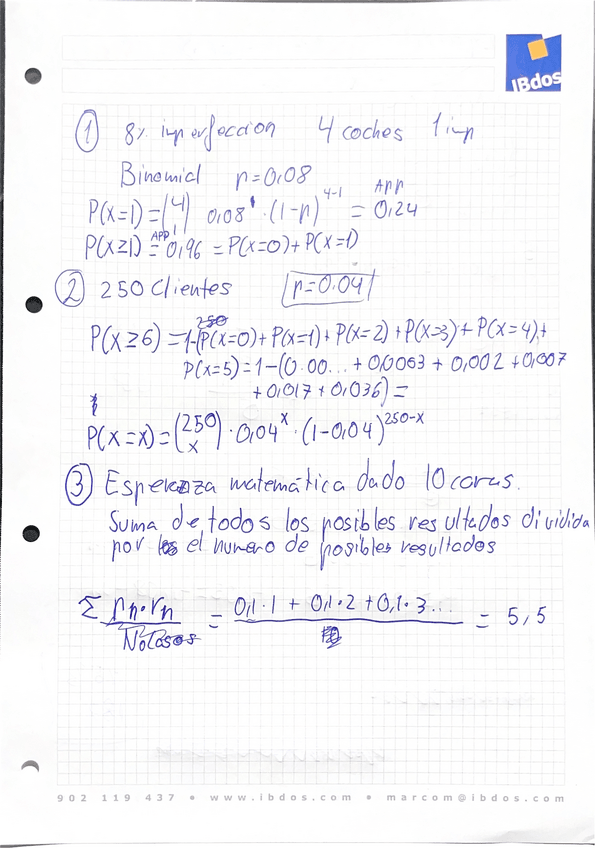 IBdos
① 8% imperfeccion 4 coches 1 imp
Binomial p=0,08
P(x=1)=(4 1) 0,08¹·(1-p)⁴⁻¹ = APP 0,24
P(x≥1) = APP 0,96 = P(x=0)+P(x=1)
② 250 Clientes p=0.04
P(x≥6)=1-(P(x=0)+P(x=1)+P(x=2)+P(x=3)+P(x=4)+
P(x=5)=1-(0.00...+0,0063+0,002+0,007
+0,017+0,036)=
P(x=x)=(250 x)·0,04ˣ·(1-0,04)²⁵⁰⁻ˣ
③ Esperanza matemática dado 10 caras.
Suma de todos los posibles resultados dividida
por el numero de posibles resultados
Σ Pn·rn = 0,1·1 + 0,1·2 + 0,1·3... = 5,5
902 119 437 • www.ibdos.com • marcom@ibdos.com